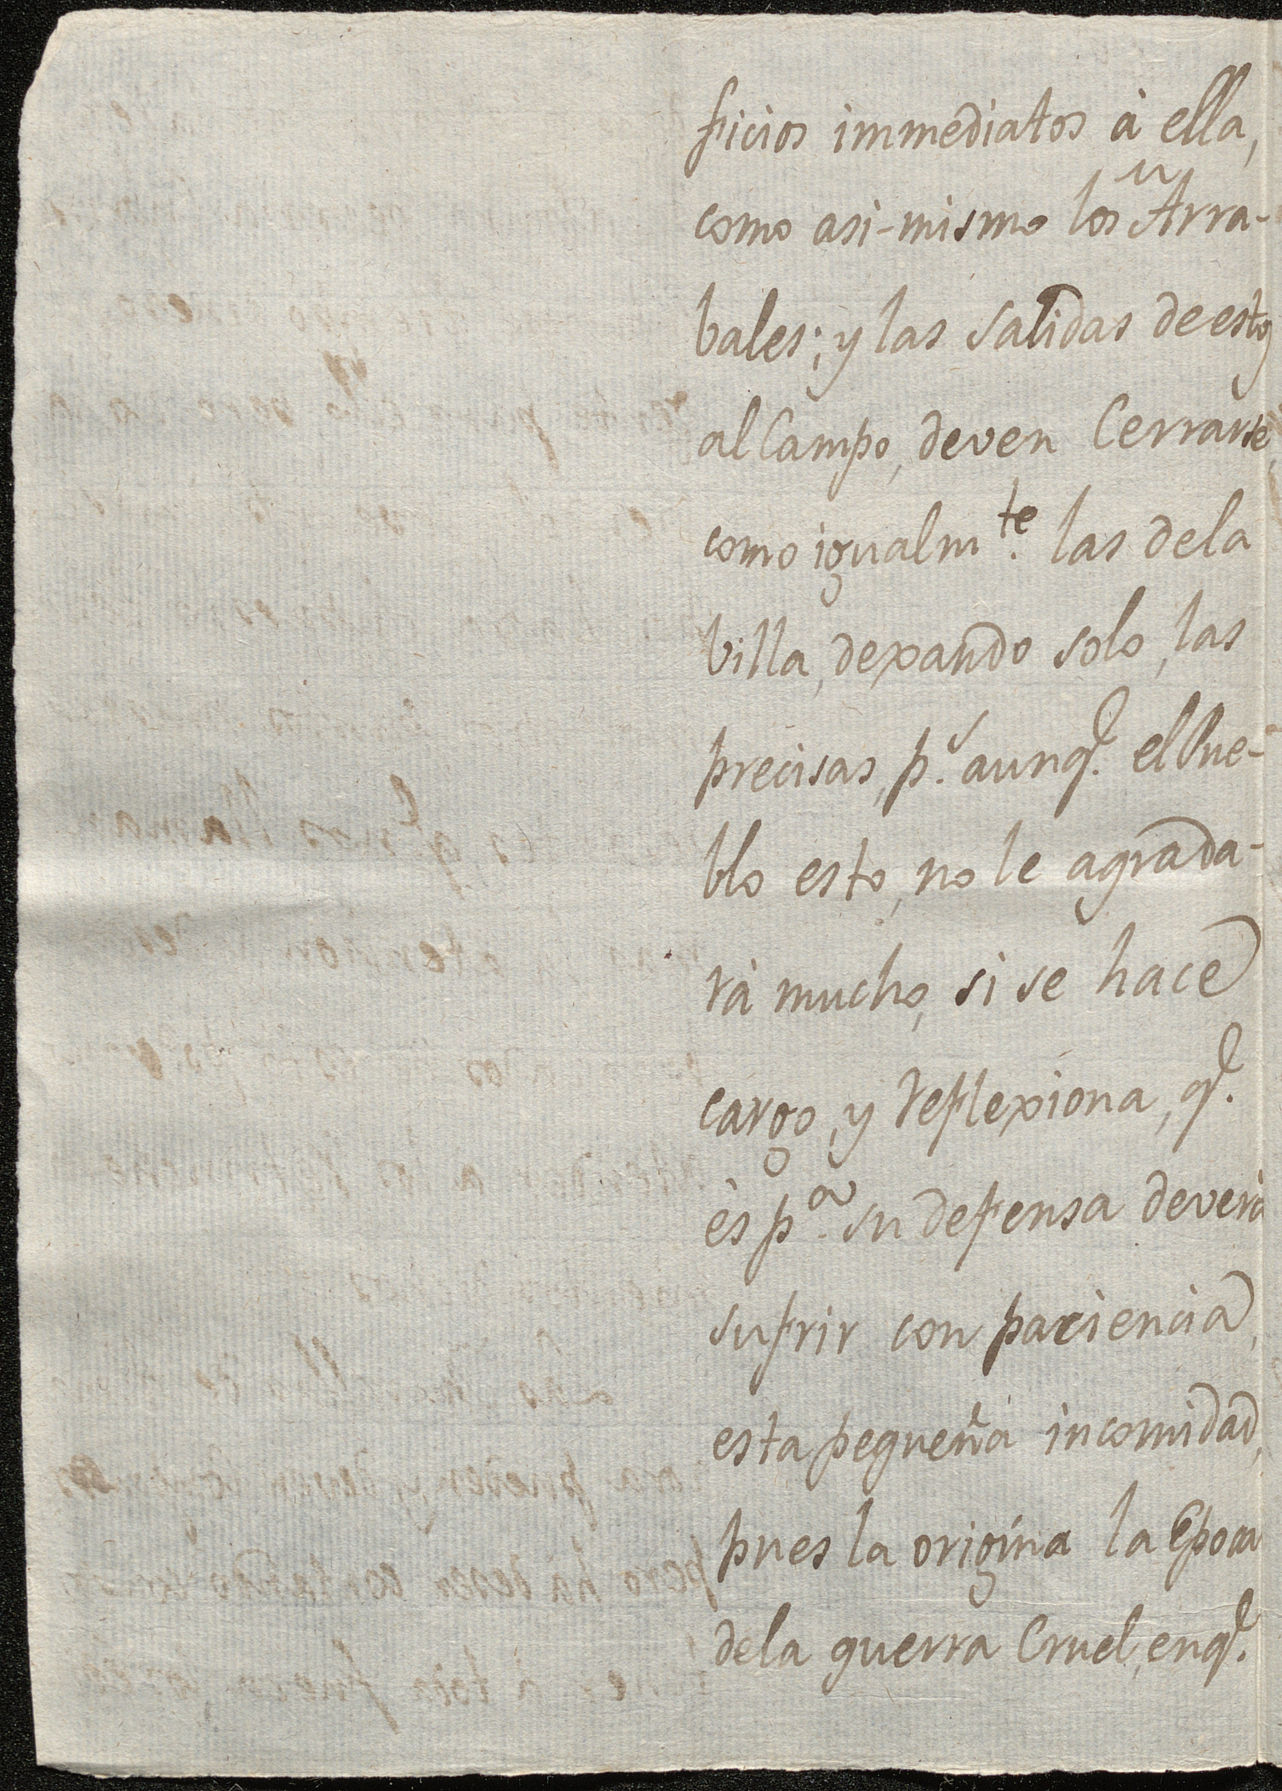 ficios immediatos à ella,
como asi-mismo los Arra-
bales; y las salidas de estos
al Campo, deven Cerrarse,
como igualmte. las dela
Villa, dexando solo, las
precisas, ps. aunq.e el Pue-
blo esto, no le agrada-
rà mucho, si se hace
cargo, y reflexiona, q.e
ès pa. su defensa deverà
sufrir con paciencia,
esta pequeña incomidad,
pues la origina la Epoca
dela guerra Cruel, enq.e